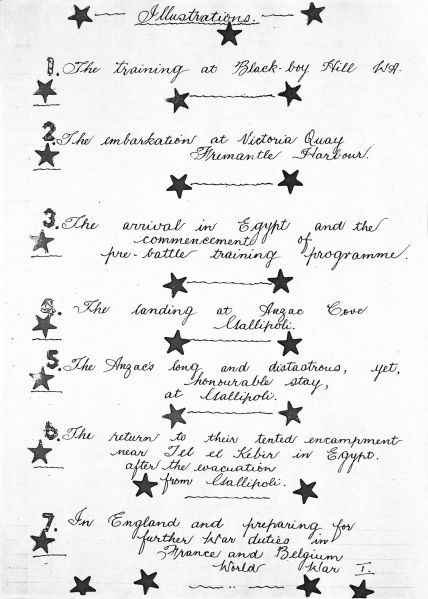 Illustrations.
1. The training at Black-boy Hill WA.
2. The embarkation at Victoria Quay
Fremantle Harbour.
3. The arrival in Egypt and the
commencement of
pre-battle training programme.
4. The landing at Anzac Cove
Gallipoli.
5. The Anzac's long and distastrous, yet,
honourable stay,
at Gallipoli.
6. The return to their tented encampment
near Tel el Kebir in Egypt.
after the evacuation
from Gallipoli.
7. In England and preparing for
further War duties in
France and Belgium
World War I.